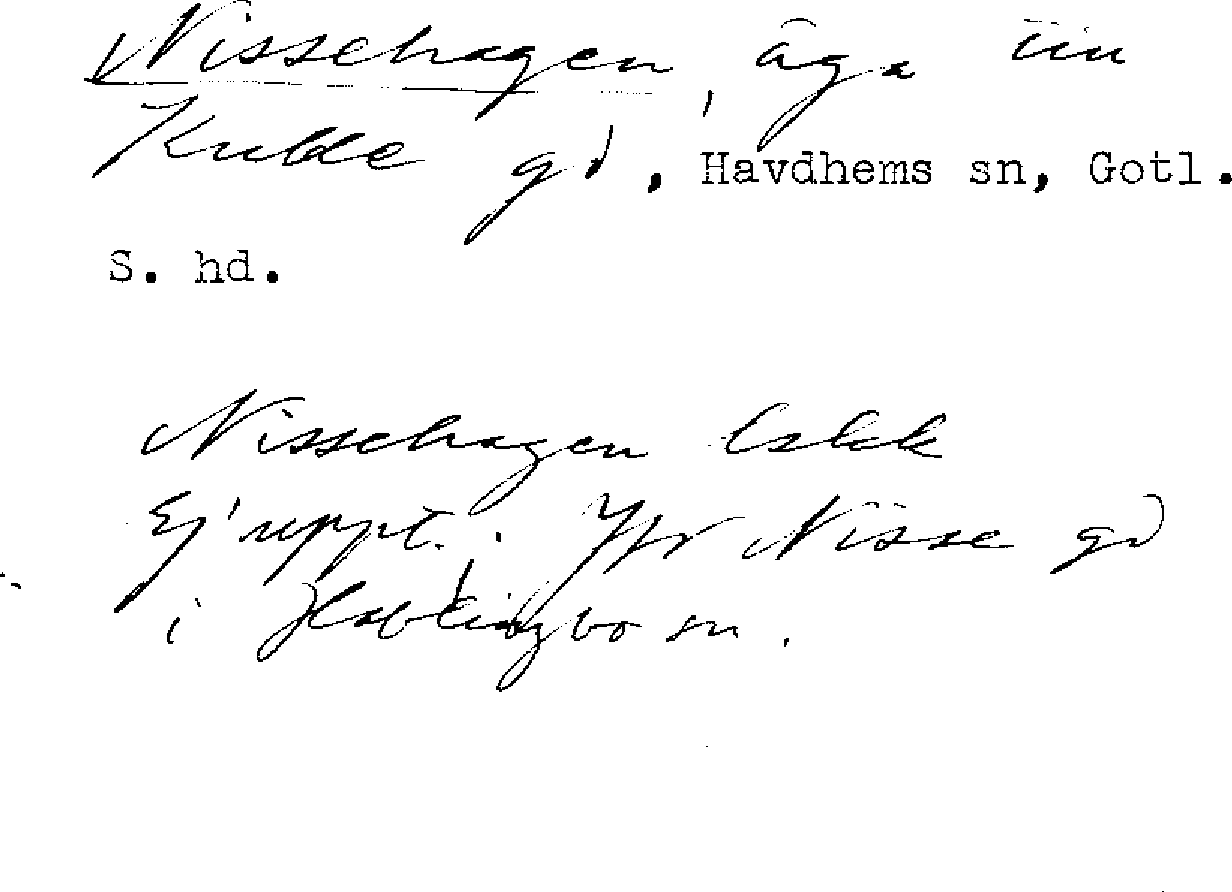 Nissehagen, äga tin
Kulde gd, Havdhems sn, Gotl.
S. hd.
Nissehagen
Ej uppt. Jfr Nisse gd
i Hablingbo sn.